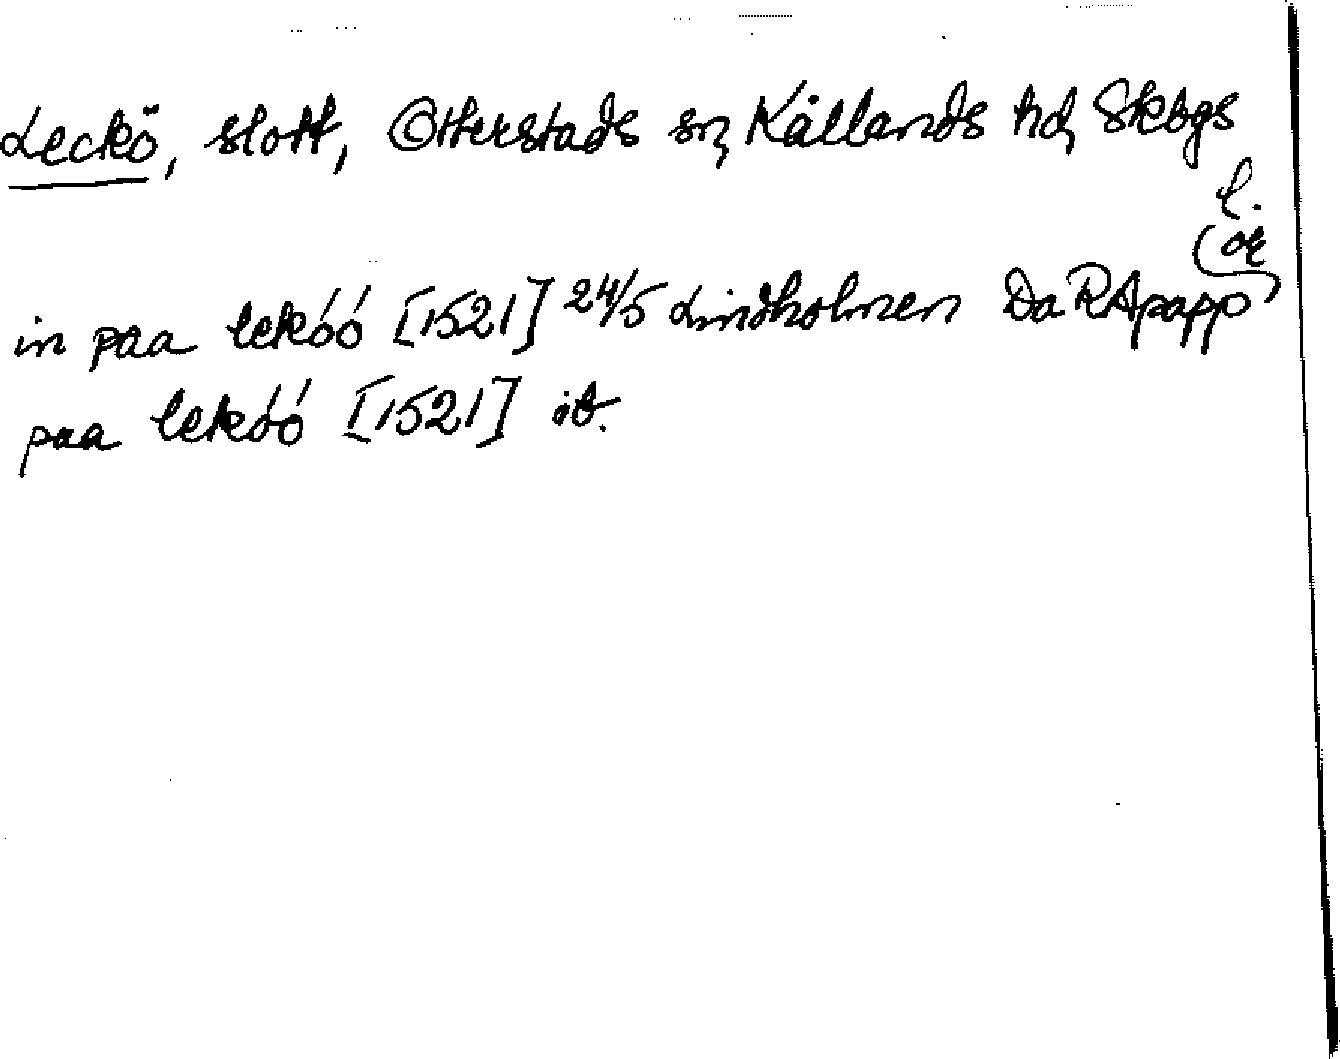 Leckö, slott, Otterstads sn, Kållands hd, Skbgs
l.
in paa lekóó [1521] 24/5 Lindholmen Da RApapp (or
paa lekóó [1521] ib.